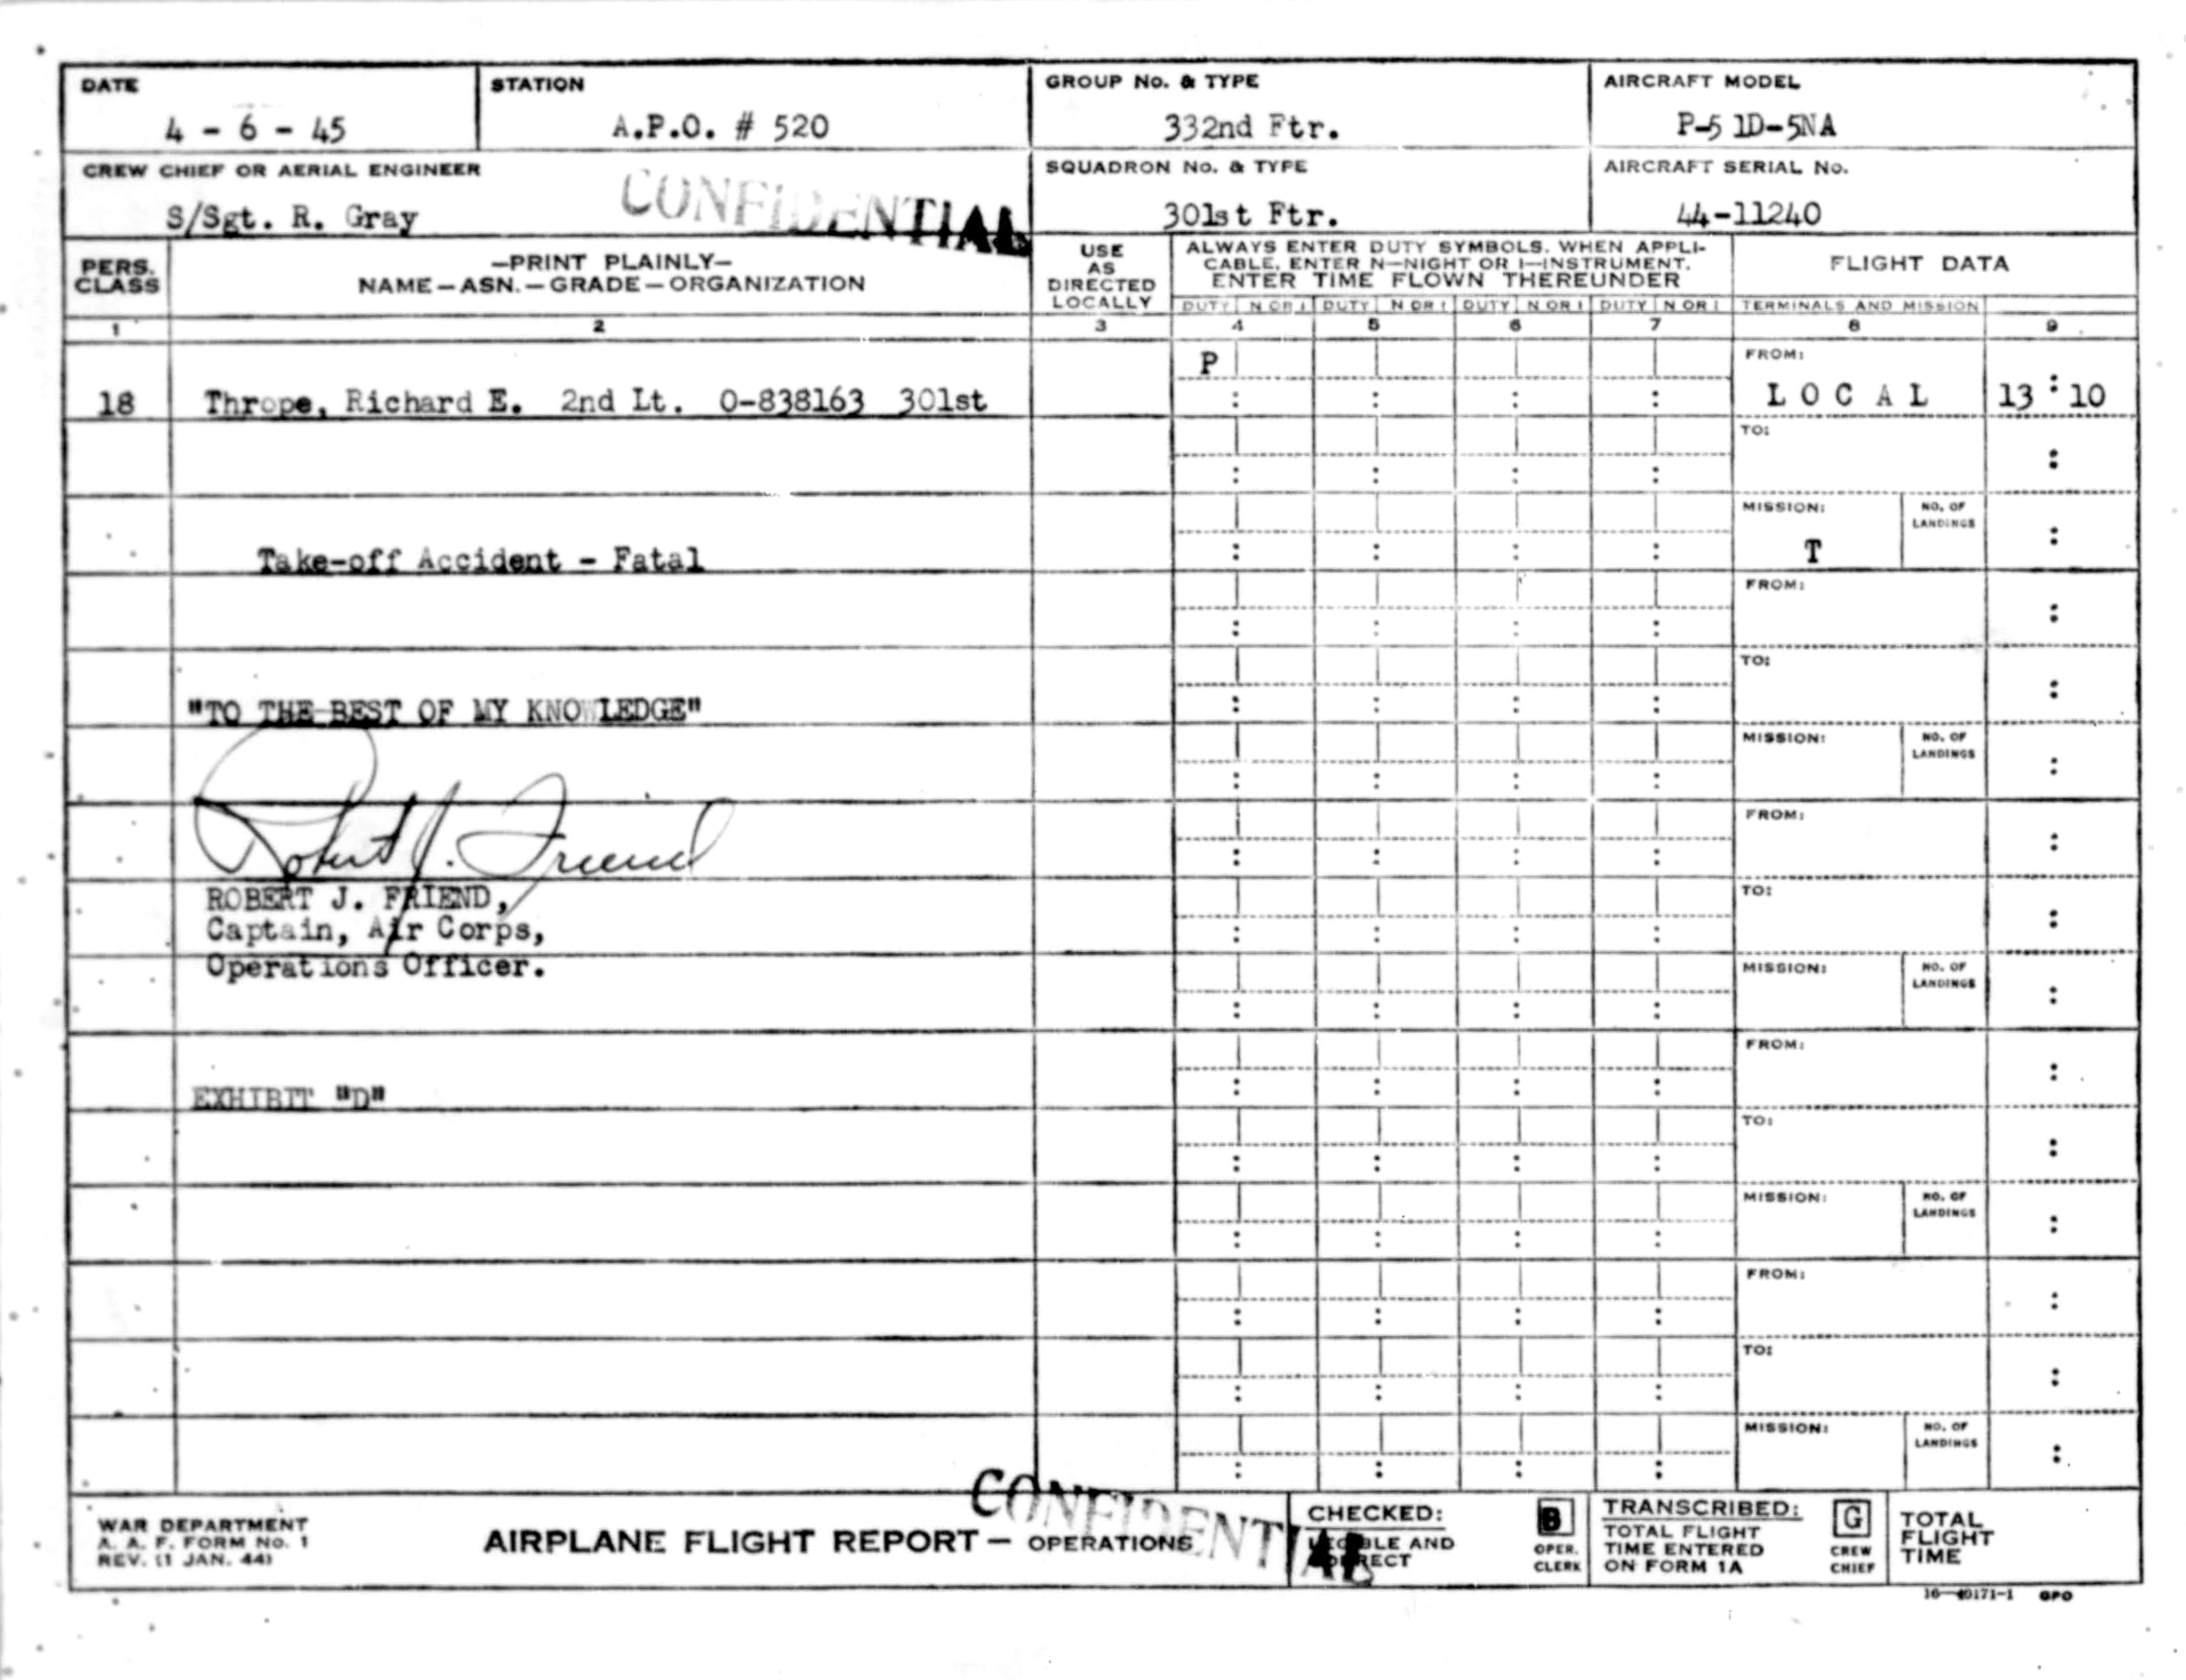 DATE
4 - 6 - 45
STATION
A.P.O. # 520
GROUP No. & TYPE
332nd Ftr.
AIRCRAFT MODEL
P-51D-5NA
CREW CHIEF OR AERIAL ENGINEER
S/Sgt. R. Gray
CONFIDENTIAL
SQUADRON No. & TYPE
301st Ftr.
AIRCRAFT SERIAL No.
44-11240
PERS.
CLASS
—PRINT PLAINLY—
NAME—ASN.—GRADE—ORGANIZATION
USE
AS
DIRECTED
LOCALLY
ALWAYS ENTER DUTY SYMBOLS. WHEN APPLI-
CABLE, ENTER N—NIGHT OR I—INSTRUMENT.
ENTER TIME FLOWN THEREUNDER
FLIGHT DATA
DUTY N OR I DUTY N OR I DUTY N OR I DUTY N OR I TERMINALS AND MISSION
1 2 3 4 5 6 7 8 9
P
FROM:
18 Thrope, Richard E. 2nd Lt. 0-838163 301st : : : : L O C A L 13 : 10
TO:
: : : : :
MISSION: NO. OF
LANDINGS
Take-off Accident - Fatal : : : : T :
FROM:
: : : : :
TO:
"TO THE BEST OF MY KNOWLEDGE" : : : : :
MISSION: NO. OF
LANDINGS
: : : : :
FROM:
Robert J. Friend : : : : :
TO:
ROBERT J. FRIEND,
Captain, Air Corps, : : : : :
Operations Officer.
MISSION: NO. OF
LANDINGS
: : : : :
FROM:
EXHIBIT "D" : : : : :
TO:
: : : : :
MISSION: NO. OF
LANDINGS
: : : : :
FROM:
: : : : :
TO:
: : : : :
MISSION: NO. OF
LANDINGS
: : : : :
WAR DEPARTMENT
A. A. F. FORM No. 1
REV. (1 JAN. 44)
AIRPLANE FLIGHT REPORT — OPERATIONS
CONFIDENTIAL
CHECKED:
LEGIBLE AND
CORRECT
B
OPER.
CLERK
TRANSCRIBED:
TOTAL FLIGHT
TIME ENTERED
ON FORM 1A
G
CREW
CHIEF
TOTAL
FLIGHT
TIME
16—40171-1 GPO